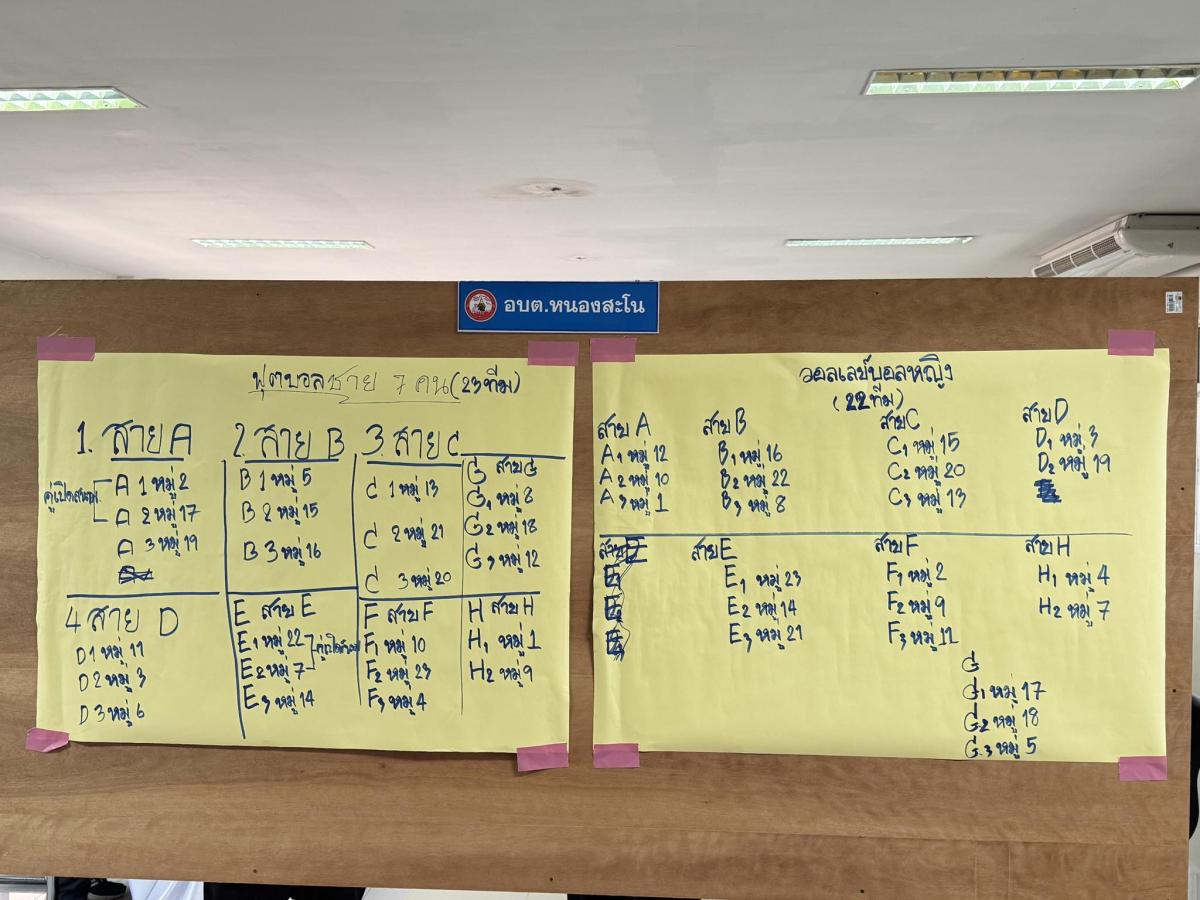 อบต.หนองสะโน
ฟุตบอลชาย 7 คน (23 ทีม)
1. สาย A
คู่เปิดสนาม
A 1 หมู่ 2
A 2 หมู่ 17
A 3 หมู่ 19
2. สาย B
B 1 หมู่ 5
B 2 หมู่ 15
B 3 หมู่ 16
3. สาย C
C 1 หมู่ 13
C 2 หมู่ 21
C 3 หมู่ 20
G สาย G
G1 หมู่ 8
G2 หมู่ 18
G3 หมู่ 12
4 สาย D
D1 หมู่ 11
D2 หมู่ 3
D3 หมู่ 6
E สาย E
E1 หมู่ 22
E2 หมู่ 7
E3 หมู่ 14
F สาย F
F1 หมู่ 10
F2 หมู่ 23
F3 หมู่ 4
H สาย H
H1 หมู่ 1
H2 หมู่ 9
วอลเลย์บอลหญิง
(22 ทีม)
สาย A
A1 หมู่ 12
A2 หมู่ 10
A3 หมู่ 1
สาย B
B1 หมู่ 16
B2 หมู่ 22
B3 หมู่ 8
สาย C
C1 หมู่ 15
C2 หมู่ 20
C3 หมู่ 13
สาย D
D1 หมู่ 3
D2 หมู่ 19
สาย E
E1 หมู่ 23
E2 หมู่ 14
E3 หมู่ 21
สาย F
F1 หมู่ 2
F2 หมู่ 9
F3 หมู่ 11
สาย H
H1 หมู่ 4
H2 หมู่ 7
G
G1 หมู่ 17
G2 หมู่ 18
G.3 หมู่ 5